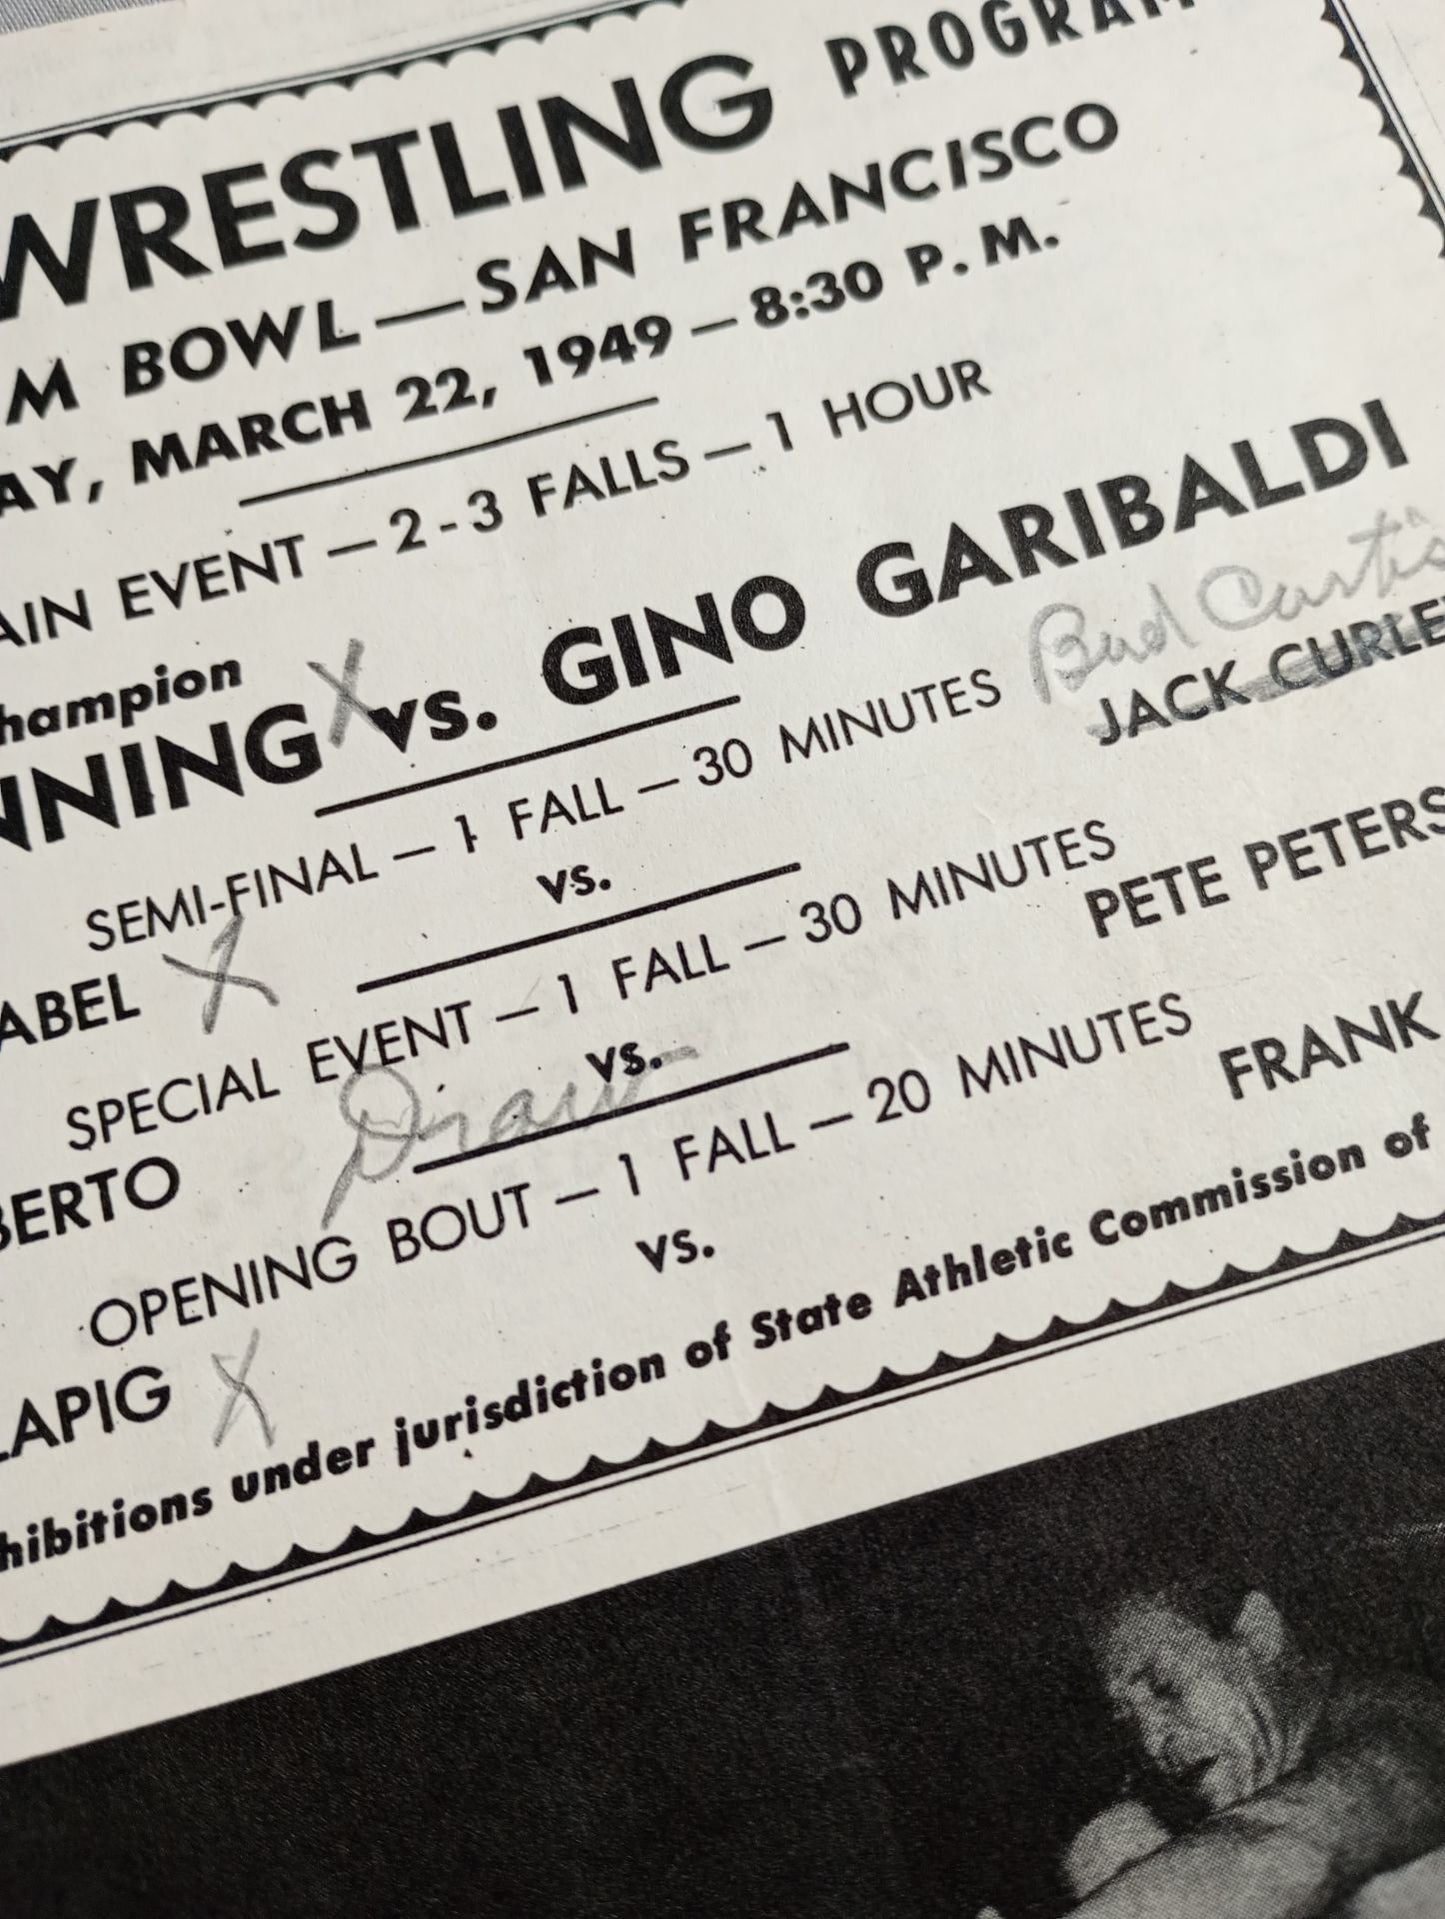 WRESTLING PROGRAM
M BOWL — SAN FRANCISCO
AY, MARCH 22, 1949 — 8:30 P. M.
AIN EVENT — 2-3 FALLS — 1 HOUR
hampion
NNING X vs. GINO GARIBALDI
SEMI-FINAL — 1 FALL — 30 MINUTES
Bud Curtis
ABEL X vs. JACK CURLE
SPECIAL EVENT — 1 FALL — 30 MINUTES
BERTO vs. PETE PETERS
Draw
OPENING BOUT — 1 FALL — 20 MINUTES
LAPIG X vs. FRANK
hibitions under jurisdiction of State Athletic Commission of